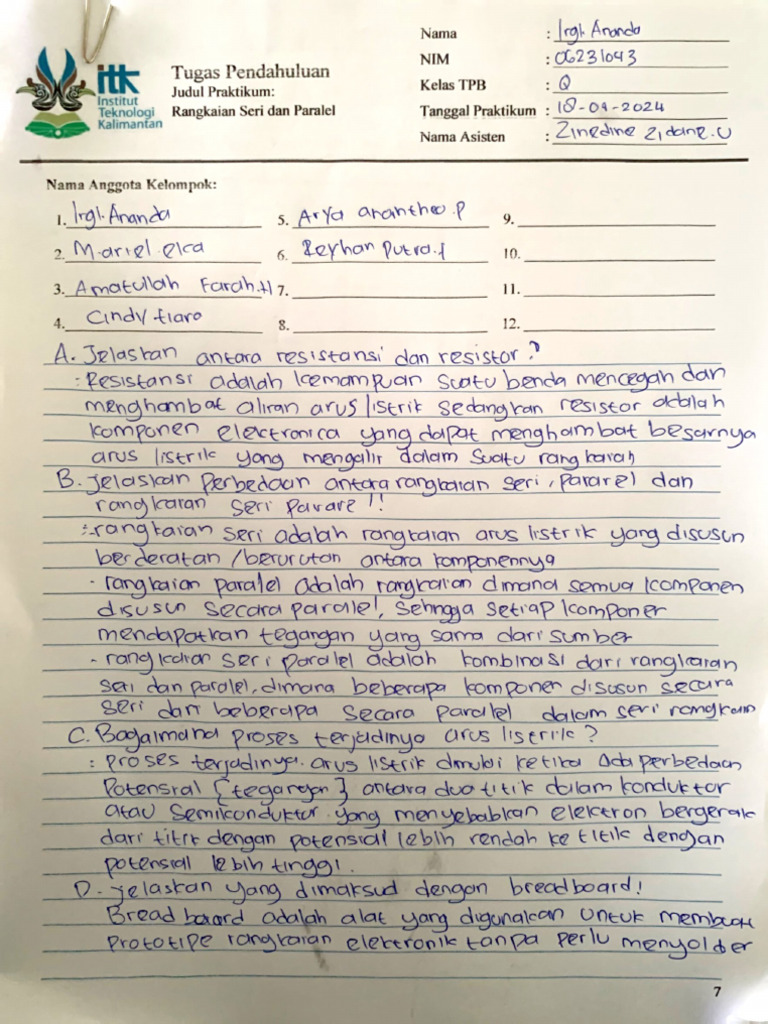 itk
Institut
Teknologi
Kalimantan
Tugas Pendahuluan
Judul Praktikum:
Rangkaian Seri dan Paralel
Nama : Irgi. Ananda
NIM : 06231043
Kelas TPB : Q
Tanggal Praktikum : 18-09-2024
Nama Asisten : Zinedine Zidane.U
Nama Anggota Kelompok:
1. Irgi. Ananda 5. Arya anantheo.P 9.
2. M.ariel.elca 6. Reyhan Putra.f 10.
3. Amatullah Farah.H 7. 11.
4. Cindy tiara 8. 12.
A. Jelaskan antara resistansi dan resistor?
: Resistansi adalah kemampuan suatu benda mencegah dan
menghambat aliran arus listrik sedangkan resistor adalah
komponen elektronica yang dapat menghambat besarnya
arus listrik yang mengalir dalam suatu rangkaian
B. Jelaskan perbedaan antara rangkaian seri, pararel dan
rangkaian seri pararel!!
: - rangkaian seri adalah rangkaian arus listrik yang disusun
berderatan / berurutan antara komponennya
- rangkaian paralel adalah rangkaian dimana semua komponen
disusun secara paralel, sehingga setiap komponen
mendapatkan tegangan yang sama dari sumber
- rangkaian seri paralel adalah kombinasi dari rangkaian
seri dan paralel, dimana beberapa komponen disusun secara
seri dan beberapa secara paralel dalam seri rangkaian
C. Bagaimana proses terjadinya arus listrik?
: proses terjadinya arus listrik dimulai ketika ada perbedaan
Potensial [tegangan] antara dua titik dalam konduktor
atau semikonduktor yang menyebabkan elektron bergerak
dari titik dengan potensial lebih rendah ke titik dengan
potensial lebih tinggi.
D. - jelaskan yang dimaksud dengan breadboard!
Bread board adalah alat yang digunakan untuk membuat
prototipe rangkaian elektronik tanpa perlu menyolder
7